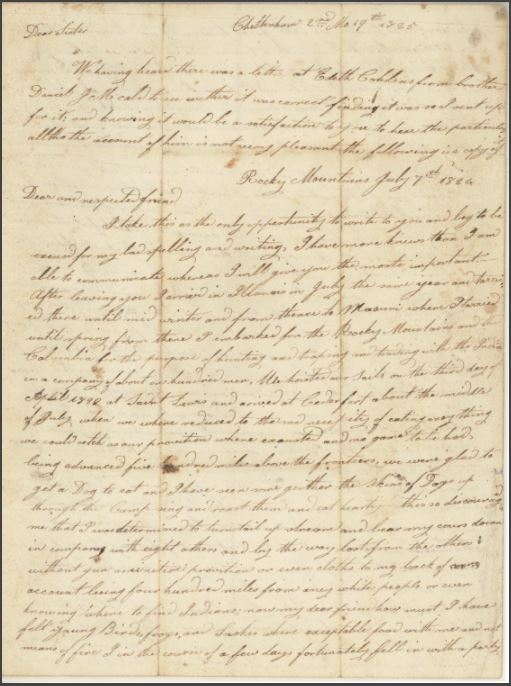 Cheltenham 2nd Mo 19th 1825
Dear Sister
We having heard there was a letter at Edith Cahdens from brother
Daniel J Mc cald to see wether it was correct finding it was so I sent up
for it, and knowing it would be a satisfaction to you to hear the particulars
altho the account of him is not very pleasant the following is a copy of
Rocky Mountains July 7th 182
Dear and respected friend
I take this as the only oppertunity to write to you and beg to be
excused for my bad spelling and writing, I have more knews than I am
able to communicate whereas I will give you the moste important
After leaving you I arived in Illanois in July the same year and tarri
ed there until mid winter and from theace to Masuri where I tarried
until spring from there I embarked for the Rocky Mountains and the
Columbia for the purpose of hunting and traping and trading with the Indians
in a company of about on hundred men, We hoisted our sails on the third day of
April at Saint Lewis and arived at Cedar fort about the middle
of July, when we where reduced to the sad necessity of eating any thing
we could catch as our provition where exausted and no game to be had,
being advanced five hundred miles above the frontiers, we were glad to
get a Dog to eat and I have seen some geather the skins of Dogs up
through the Camp seing and roast them and eat hearty, this so discouraged
me that I was determined to turn tail up stream and bear my cours down
in company with eight others and by the way lost from the others
without gun amunition provition or even cloths to my back of
account being four hundred miles from any white people or even
knowing where to find Indians, now my dear friend how must I have
felt young Birds, frogs, and Snakes where exceptable food with me and not
means of fire I in the course of a few days fortunately fell in with a party